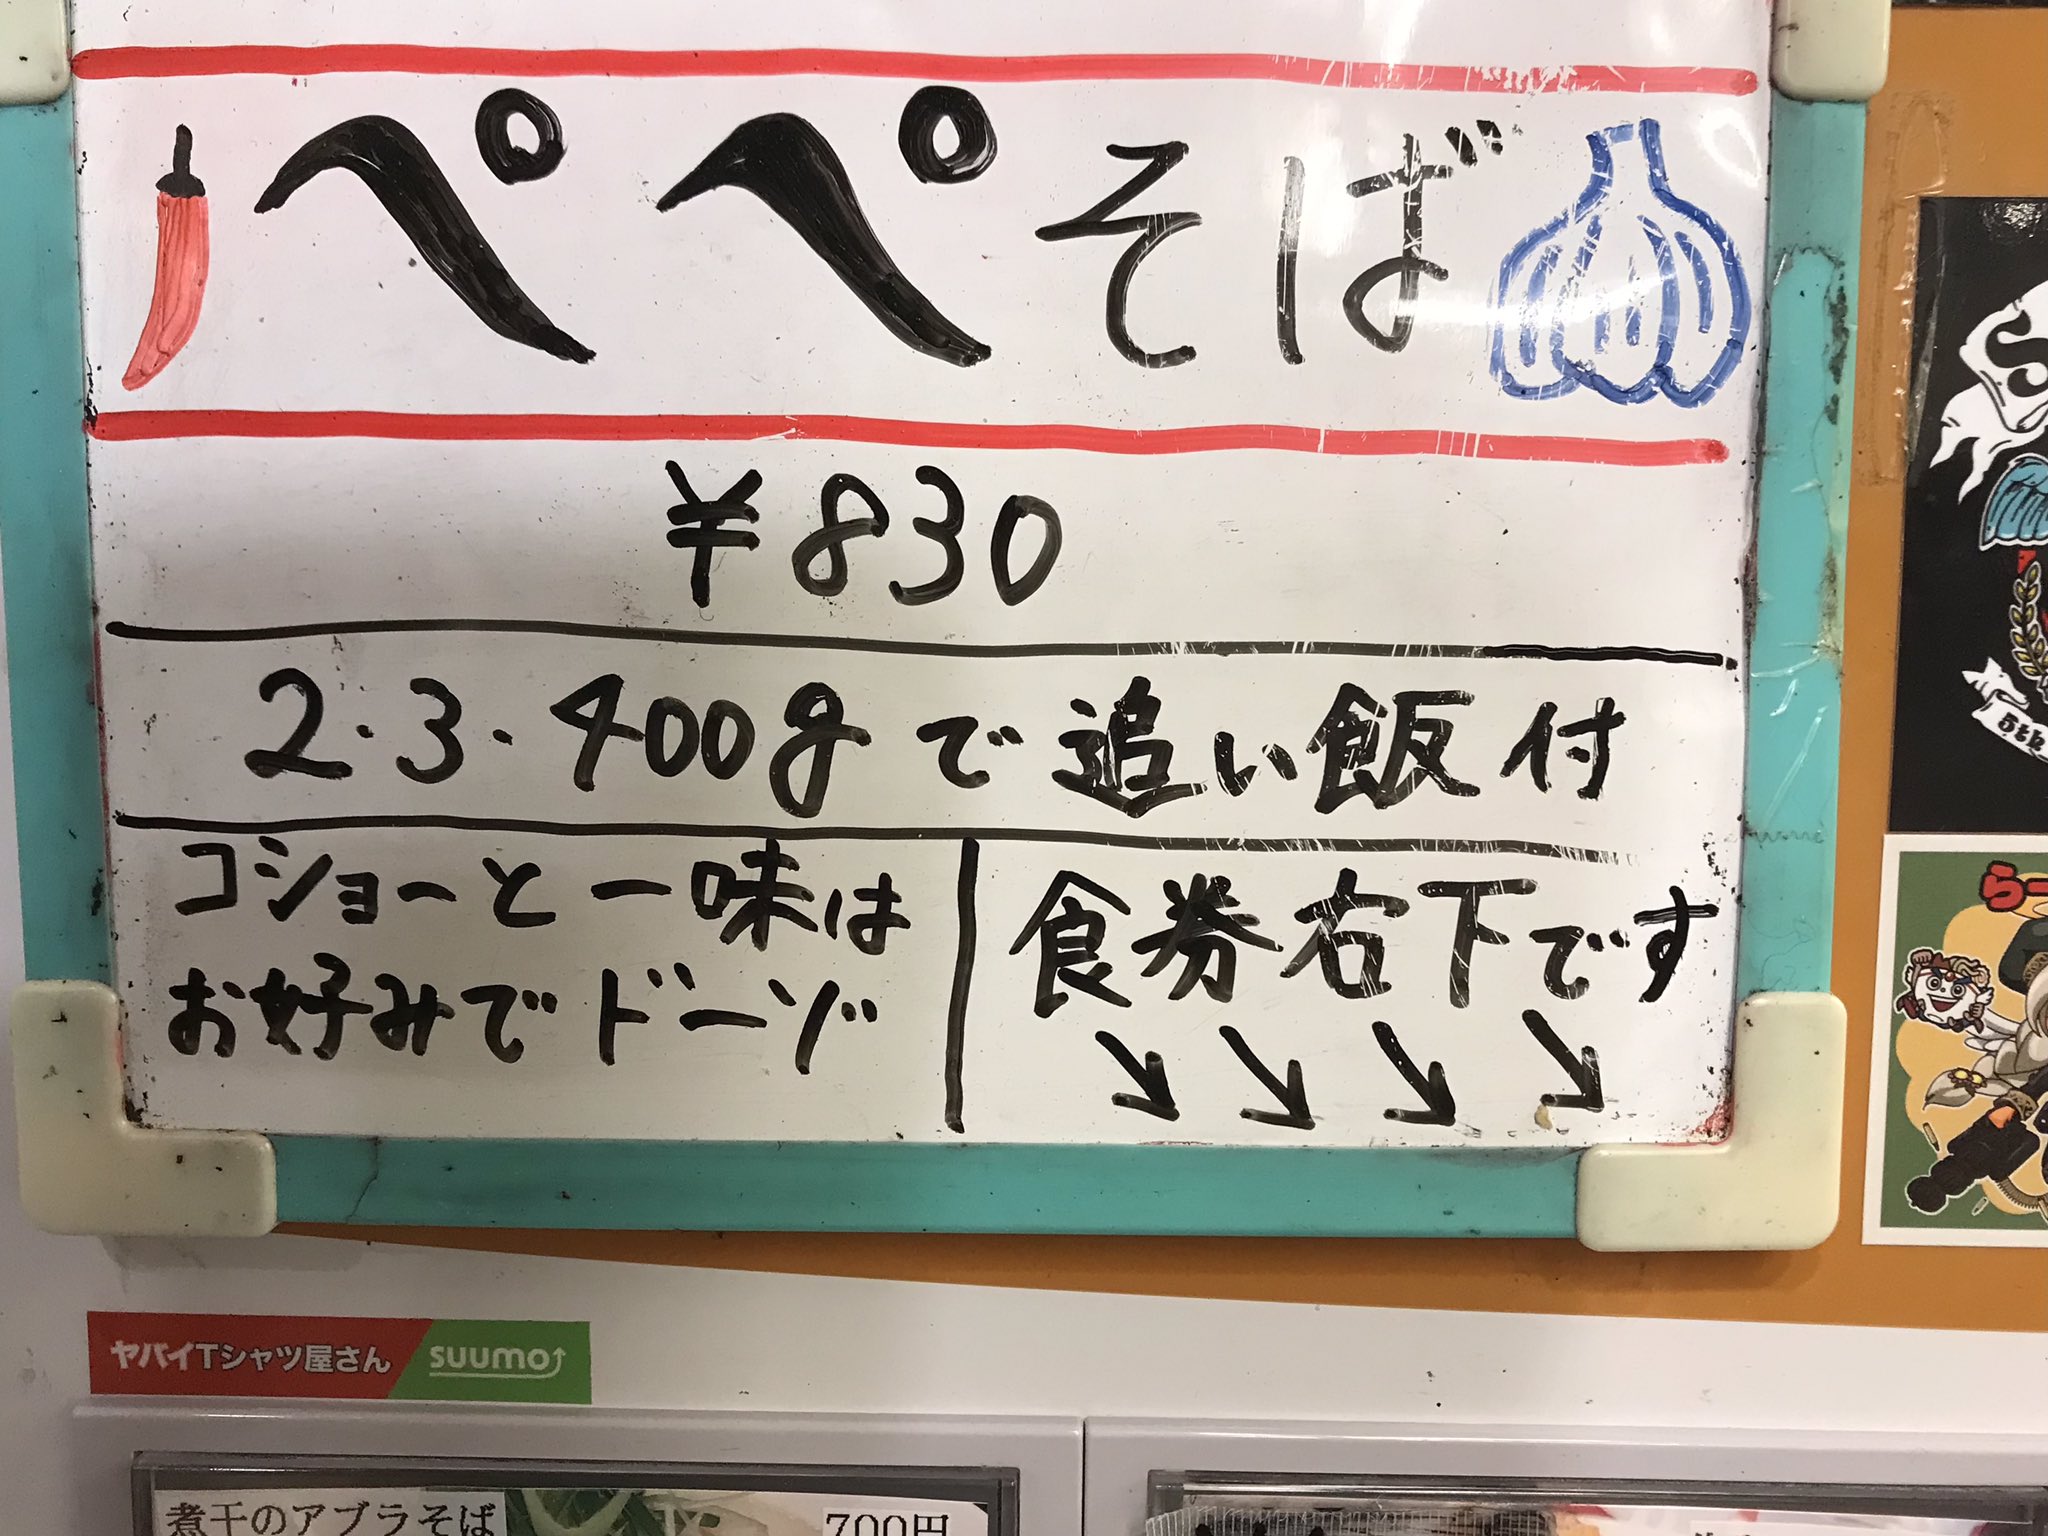 ペペそば
¥830
2・3・400gで追い飯付
コショーと一味は
お好みでドーゾ
食券右下です
↘↘↘↘
ヤバイTシャツ屋さん
suumo
煮干のアブラそば
700円
5th
らー